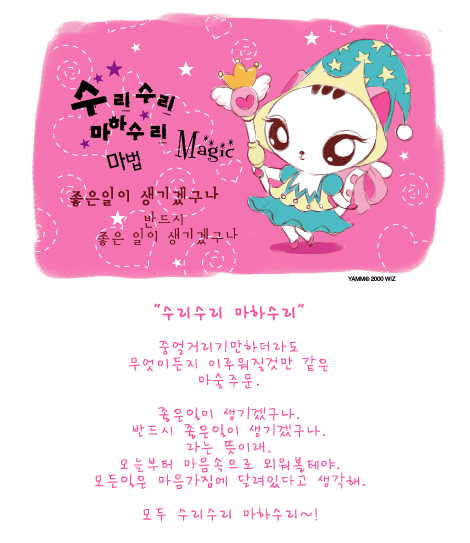 수리수리
마하수리
마법 Magic
좋은일이 생기겠구나
반드시
좋은 일이 생기겠구나
YAMM© 2000 WIZ
"수리수리 마하수리"
중얼거리기만하더라도
무엇이든지 이루워질것만 같은
마술주문.
좋은일이 생기겠구나.
반드시 좋은일이 생기겠구나.
라는 뜻이래.
오늘부터 마음속으로 외워볼테야.
모든일은 마음가짐에 달려있다고 생각해.
모두 수리수리 마하수리~!